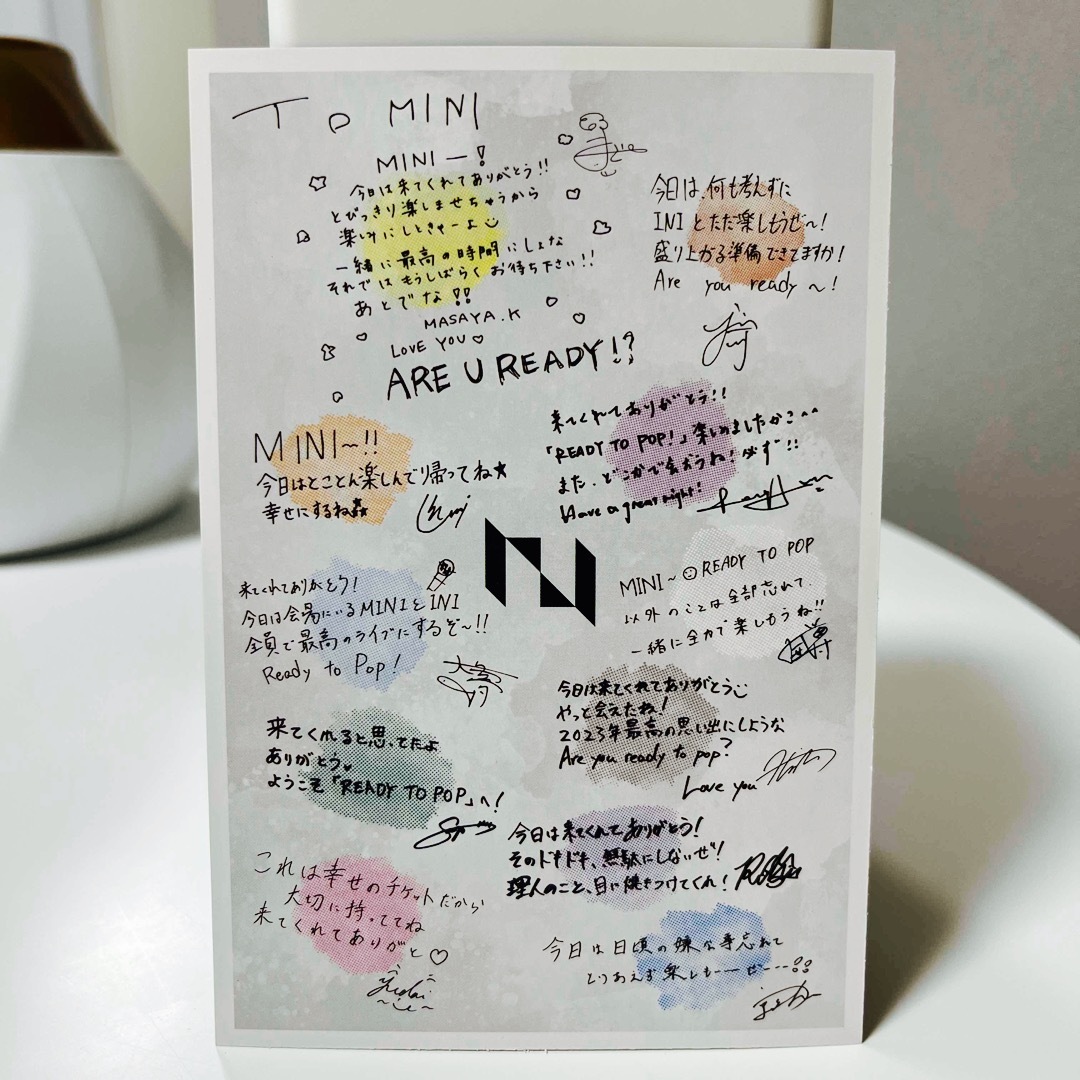 To MINI
MINI ー!
今日は来てくれてありがとう!!
とびっきり楽しませちゃうから
楽しみにしときやーよ
一緒に最高の時間にしょな
それでは もうしばらく お待ち下さい!!
あとでな!!
MASAYA.K
LOVE YOU♡
ARE U READY!?
今日は、何も考えずに
INIとただ楽しもうぜ〜!
盛り上がる準備できてますか!
Are you ready 〜!
MINI〜!!
今日はとことん楽しんで帰ってね★
幸せにするね
来てくれてありがとう!!
「READY TO POP!」楽しめましたかこ^^
また、どこかで会おうね!必ず!!
Have a great night!
来てくれてありがとう!
今日は会場にいるMINIとINI
全員で最高のライブにするぞ〜!!
Ready to Pop!
MINI〜☺READY TO POP
以外のことは全部忘れて、
一緒に全力で楽しもうね!!
来てくれると思ってたよ
ありがとう
ようこそ「READY TO POP」へ!
今日は来てくれてありがとう
やっと会えたね!
2023年最高の思い出にしような
Are you ready to pop?
Love you
今日は来てくれてありがとう!
そのドキドキ、無駄にしないぜ!
理人のこと、目に焼きつけてくれ!
これは幸せのチケットだから
大切に持っててね
来てくれてありがと♡
Yudai
今日は日頃の嫌な事忘れて
とりあえず楽しもーーぜーー!!